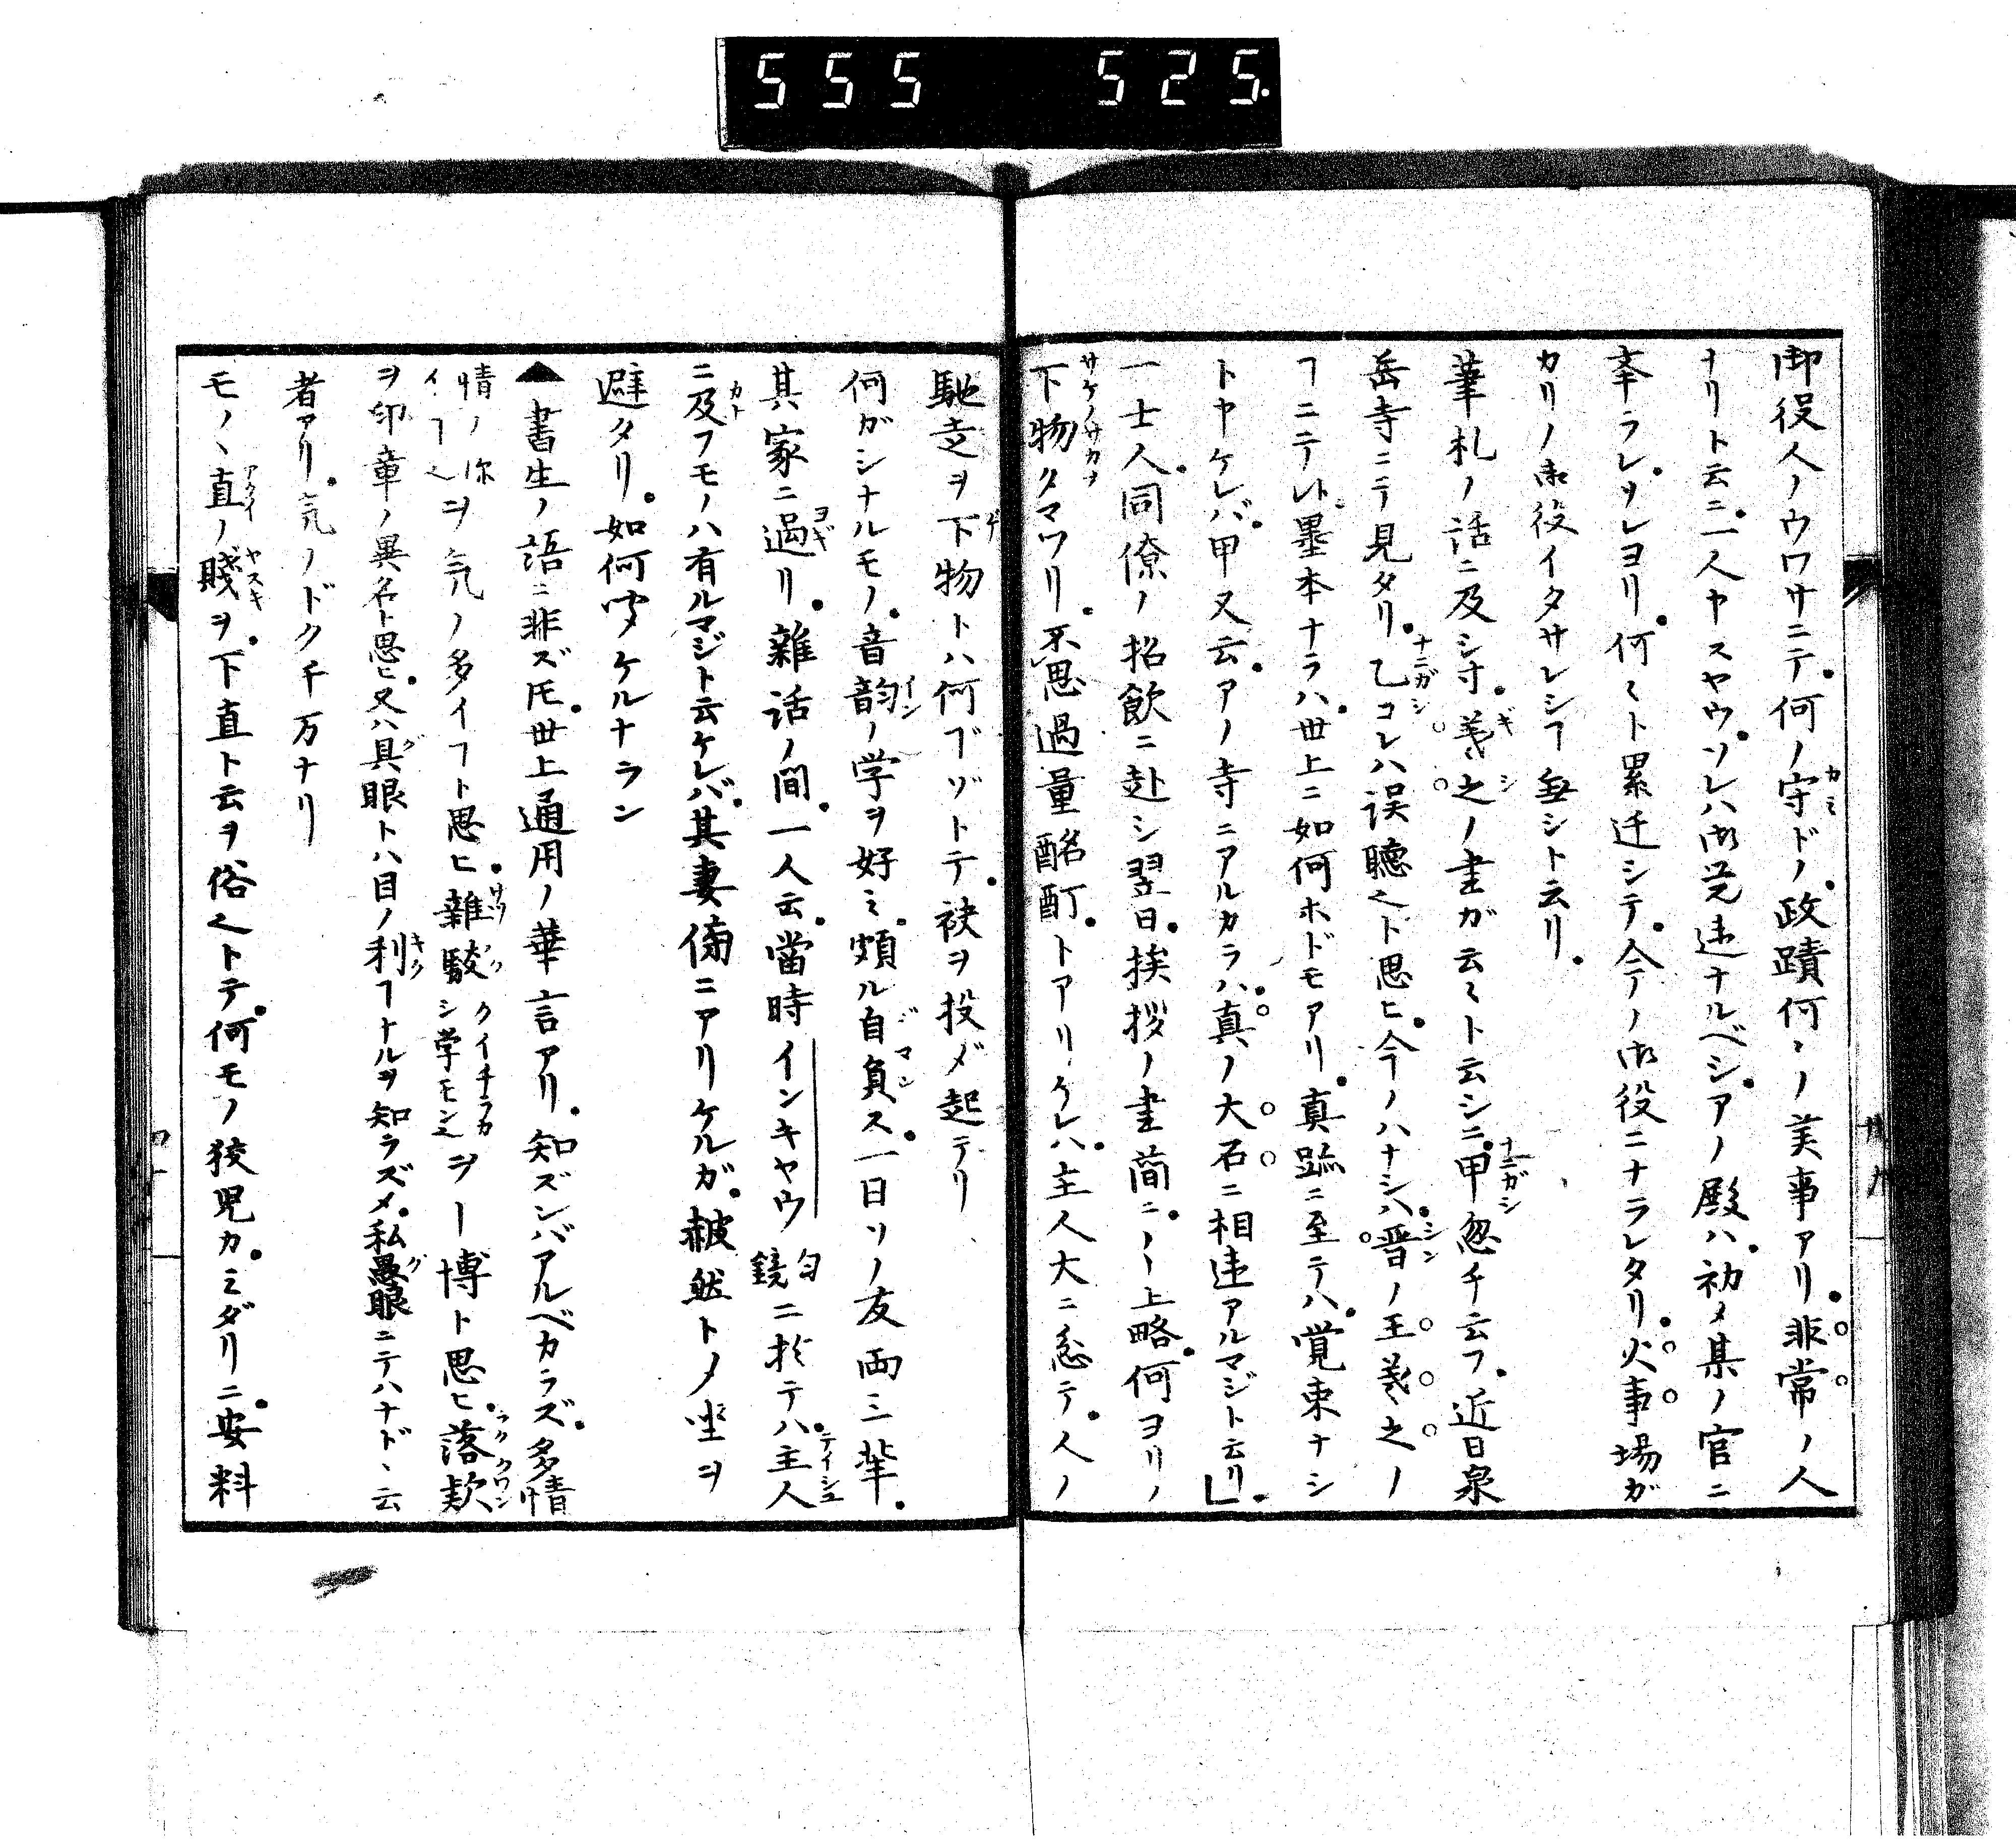 555 525.
御役人ノウワサニテ何ノ守ドノ政蹟何〻ノ美事アリ非常ノ人
ナリト云ニ一人ヤスヤウソレハ御見違ナルベシアノ殿ハ初メ某ノ官ニ
奉ラレソレヨリ何〻ト累迁シテ今ノ御役ニナラレタリ火事場ガ
カリノ御役イタサレシヿ無シト云リ
筆札ノ話ニ及シ寸羲之ノ書ガ云〻ト云シニ甲忽チ云フ近日泉
岳寺ニテ見タリ乙コレハ誤聴也ト思ヒ今ノハナシハ晋ノ王羲之ノ
ヿニテ墨本ナラハ世上ニ如何ホドモアリ真跡ニ至テハ覚束ナシ
トヤケレバ甲又云アノ寺ニアルカラハ真ノ大石ニ相違アルマジト云リ
一士人同僚ノ招飲ニ赴シ翌日挨拶ノ書簡ニ上略何ヨリノ
下物クマワリ不思過量酩酊トアリケレハ主人大ニ忿テ人ノ
馳走ヲ下物トハ何ヿゾトテ袂ヲ投〆起テリ
何ガシナルモノ音韵ノ学ヲ好ミ頗ル自負ス一日ソノ友両三輩
其家ニ過リ雜話ノ間一人云當時インキヤウ匀鏡ニ於テハ主人
ニ及フモノハ有ルマジト云ケレバ其妻傍ニアリケルガ赧然ト〆坐ヲ
避タリ如何聞ケルナラン
▲書生ノ語ニ非ズ𪜈世上通用ノ華言アリ知ズンバアルベカラズ多情
情ノ深イヿ也ヲ気ノ多イヿト思ヒ雜駁クイチラカシ学モン也ヲ一博ト思ヒ落款
ヲ印章ノ異名ト思ヒ又ハ具眼トハ目ノ利ヿナルヲ知ラズ〆私愚眼ニテハナド〻云
者アリ気ノドク千万ナリ
モノヽ直ノ賤ヲ下直ト云ヲ俗也トテ何モノ狡児カミダリニ安料